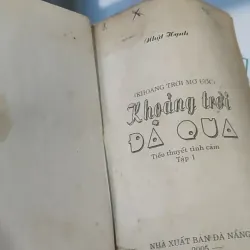 Nhật Hạnh
(KHOẢNG TRỜI MƠ ƯỚC)
Khoảng trời
ĐÃ QUA
Tiểu thuyết tình cảm
Tập 1
NHÀ XUẤT BẢN ĐÀ NẴNG
2005